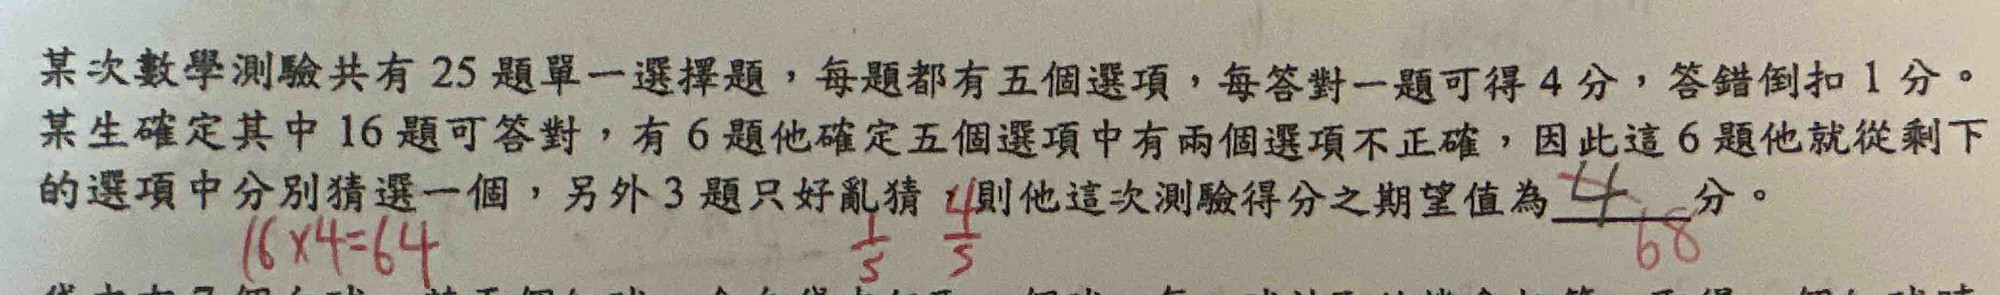 某次數學測驗共有 25 題單一選擇題，每題都有五個選項，每答對一題可得 4 分，答錯倒扣 1 分。
某生確定其中 16 題可答對，有 6 題他確定五個選項中有兩個選項不正確，因此這 6 題他就從剩下
的選項中分別猜選一個，另外 3 題只好亂猜，則他這次測驗得分之期望值為 4 分。
68
16×4=64
1/5
4/5